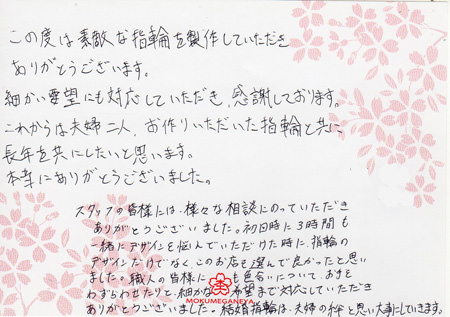 この度は素敵な指輪を製作していただき
ありがとうございます。
細かい要望にも対応していただき、感謝しております。
これからは夫婦二人、お作りいただいた指輪と共に
長年を共にしたいと思います。
本当にありがとうございました。
スタッフの皆様には、様々な相談にのっていただき
ありがとうございました。初回時に3時間も
一緒にデザインを悩んでいただけた時に、指輪の
デザインだけでなく、このお店を選んで良かったと思い
ました。職人の皆様に も色合いについて、お手を
わずらわせたりと、細かな 希望まで対応していただき
MOKUMEGANEYA
ありがとうございました。結婚指輪は、夫婦の絆と思い大事にしていきます。